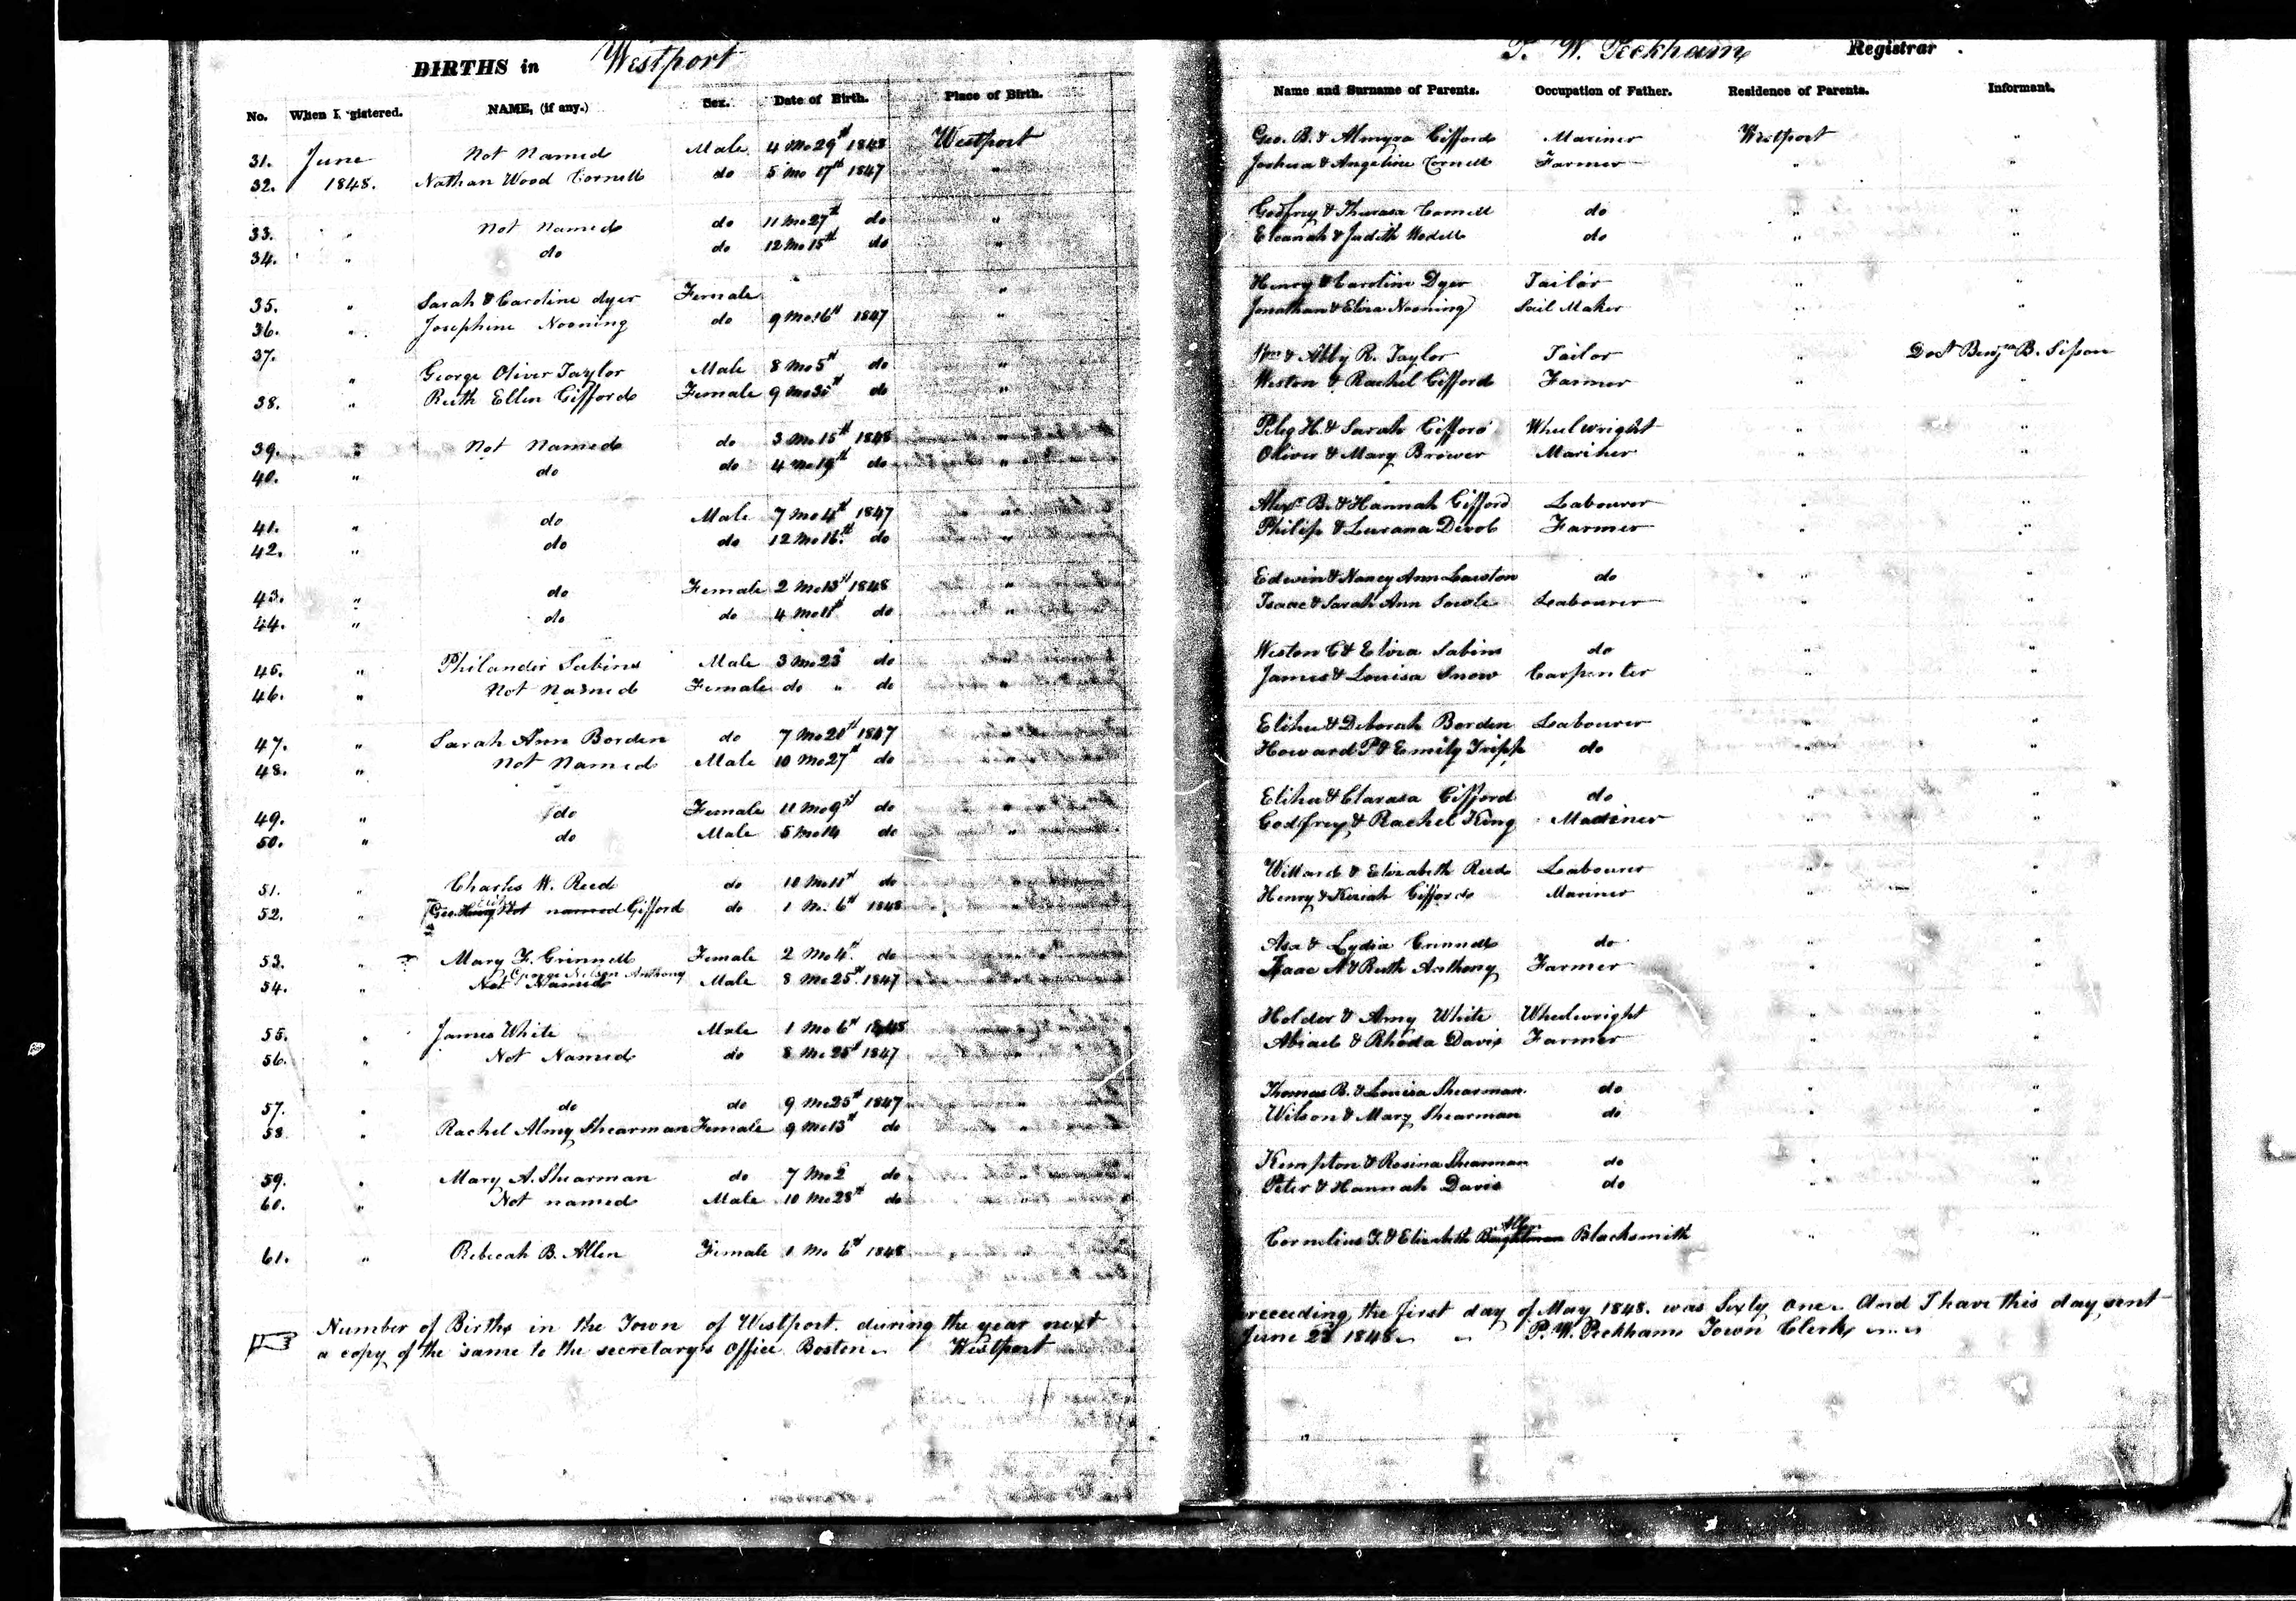 BIRTHS in Westport P. W. Peckham Registrar.
No. When Registered. NAME, (if any.) Sex. Date of Birth. Place of Birth. Name and Surname of Parents. Occupation of Father. Residence of Parents. Informant.
31. June Not Named Male 4 Mo 29th 1848 Westport Geo. B. & Almyra Gifford Mariner Westport "
32. 1848. Nathan Wood Cornell do 5 Mo 17th 1847 " Joshua & Angeline Cornell Farmer " "
33. " Not Named do 11 Mo 27th do " Godfrey & Cornell do " "
34. " do do 12 Mo 15th do " & Judith do " "
35. " Sarah & Caroline dyer Female " Henry & Caroline Dyer Tailor " "
36. " Josephine Nooning do 9 Mo 16th 1847 " Jonathan & Eliza Nooning Sail Maker " "
37. " George Oliver Taylor Male 8 Mo 5th do " Wm & Abby R. Taylor Tailor " Doct Benjn B. Sisson
38. " Ruth Ellen Gifford Female 9 Mo 30th do " Weston & Rachel Gifford Farmer " "
39. " Not Named do 3 Mo 15th 1848 " Peleg H. & Sarah Gifford Wheelwright " "
40. " do do 4 Mo 19th do " Oliver & Mary Brower Mariner " "
41. " do Male 7 Mo 4th 1847 " Alexr B. & Hannah Gifford Labourer " "
42. " do do 12 Mo 16th do " Philip & Lurana Devol Farmer " "
43. " do Female 2 Mo 13th 1848 " Edwin & Nancy Ann do " "
44. " do do 4 Mo 11th do " Isaac & Sarah Ann Sowle Labourer " "
45. " Philander Sabins Male 3 Mo 23 do " Weston G & Elvira Sabins do " "
46. " Not Named Female do " do " James & Louisa Snow Carpenter " "
47. " Sarah Ann Borden do 7 Mo 20th 1847 " Elihu & Deborah Borden Labourer " "
48. " Not Named Male 10 Mo 27th do " Howard P & Emily Tripp do " "
49. " do Female 11 Mo 9th do " Elihu & Clarasa Gifford do " "
50. " do Male 5 Mo 14 do " Godfrey & Rachel King Mariner " "
51. " Charles W. Reed do 10 Mo 11th do " Willard & Elizabeth Reed Labourer " "
52. " Geo. Henry Not named Gifford do 1 Mo 6th 1848 " Henry & Keziah Gifford Mariner " "
53. " Mary F. Grinnell Female 2 Mo 4th do " Asa & Lydia Grinnell do " "
54. " Not Named George Nelson Anthony Male 8 Mo 25th 1847 " Isaac N & Ruth Anthony Farmer " "
55. " James White Male 1 Mo 6th 1848 " Holder & Amy White Wheelwright " "
56. " Not Named do 8 Mo 25th 1847 " Abiael & Rhoda Davis Farmer " "
57. " do do 9 Mo 25th 1847 " Thomas B. & Louisa Shearman do " "
58. " Rachel Almy Shearman Female 9 Mo 13th do " Wilson & Mary Shearman do " "
59. " Mary A. Shearman do 7 Mo 2 do " Kempton & Rosina Shearman do " "
60. " Not named Male 10 Mo 28th do " Peter & Hannah Davis do " "
61. " Rebecah B. Allen Female 1 Mo 6th 1848 " Cornelius T. & Elizabeth Brightman Allen Blacksmith " "
Number of Births in the Town of Westport. during the year next preceeding the first day of May 1848. was Sixty one. And I have this day sent
a copy of the same to the secretary's Office Boston. Westport June 23 1848. P. W. Peckham Town Clerk